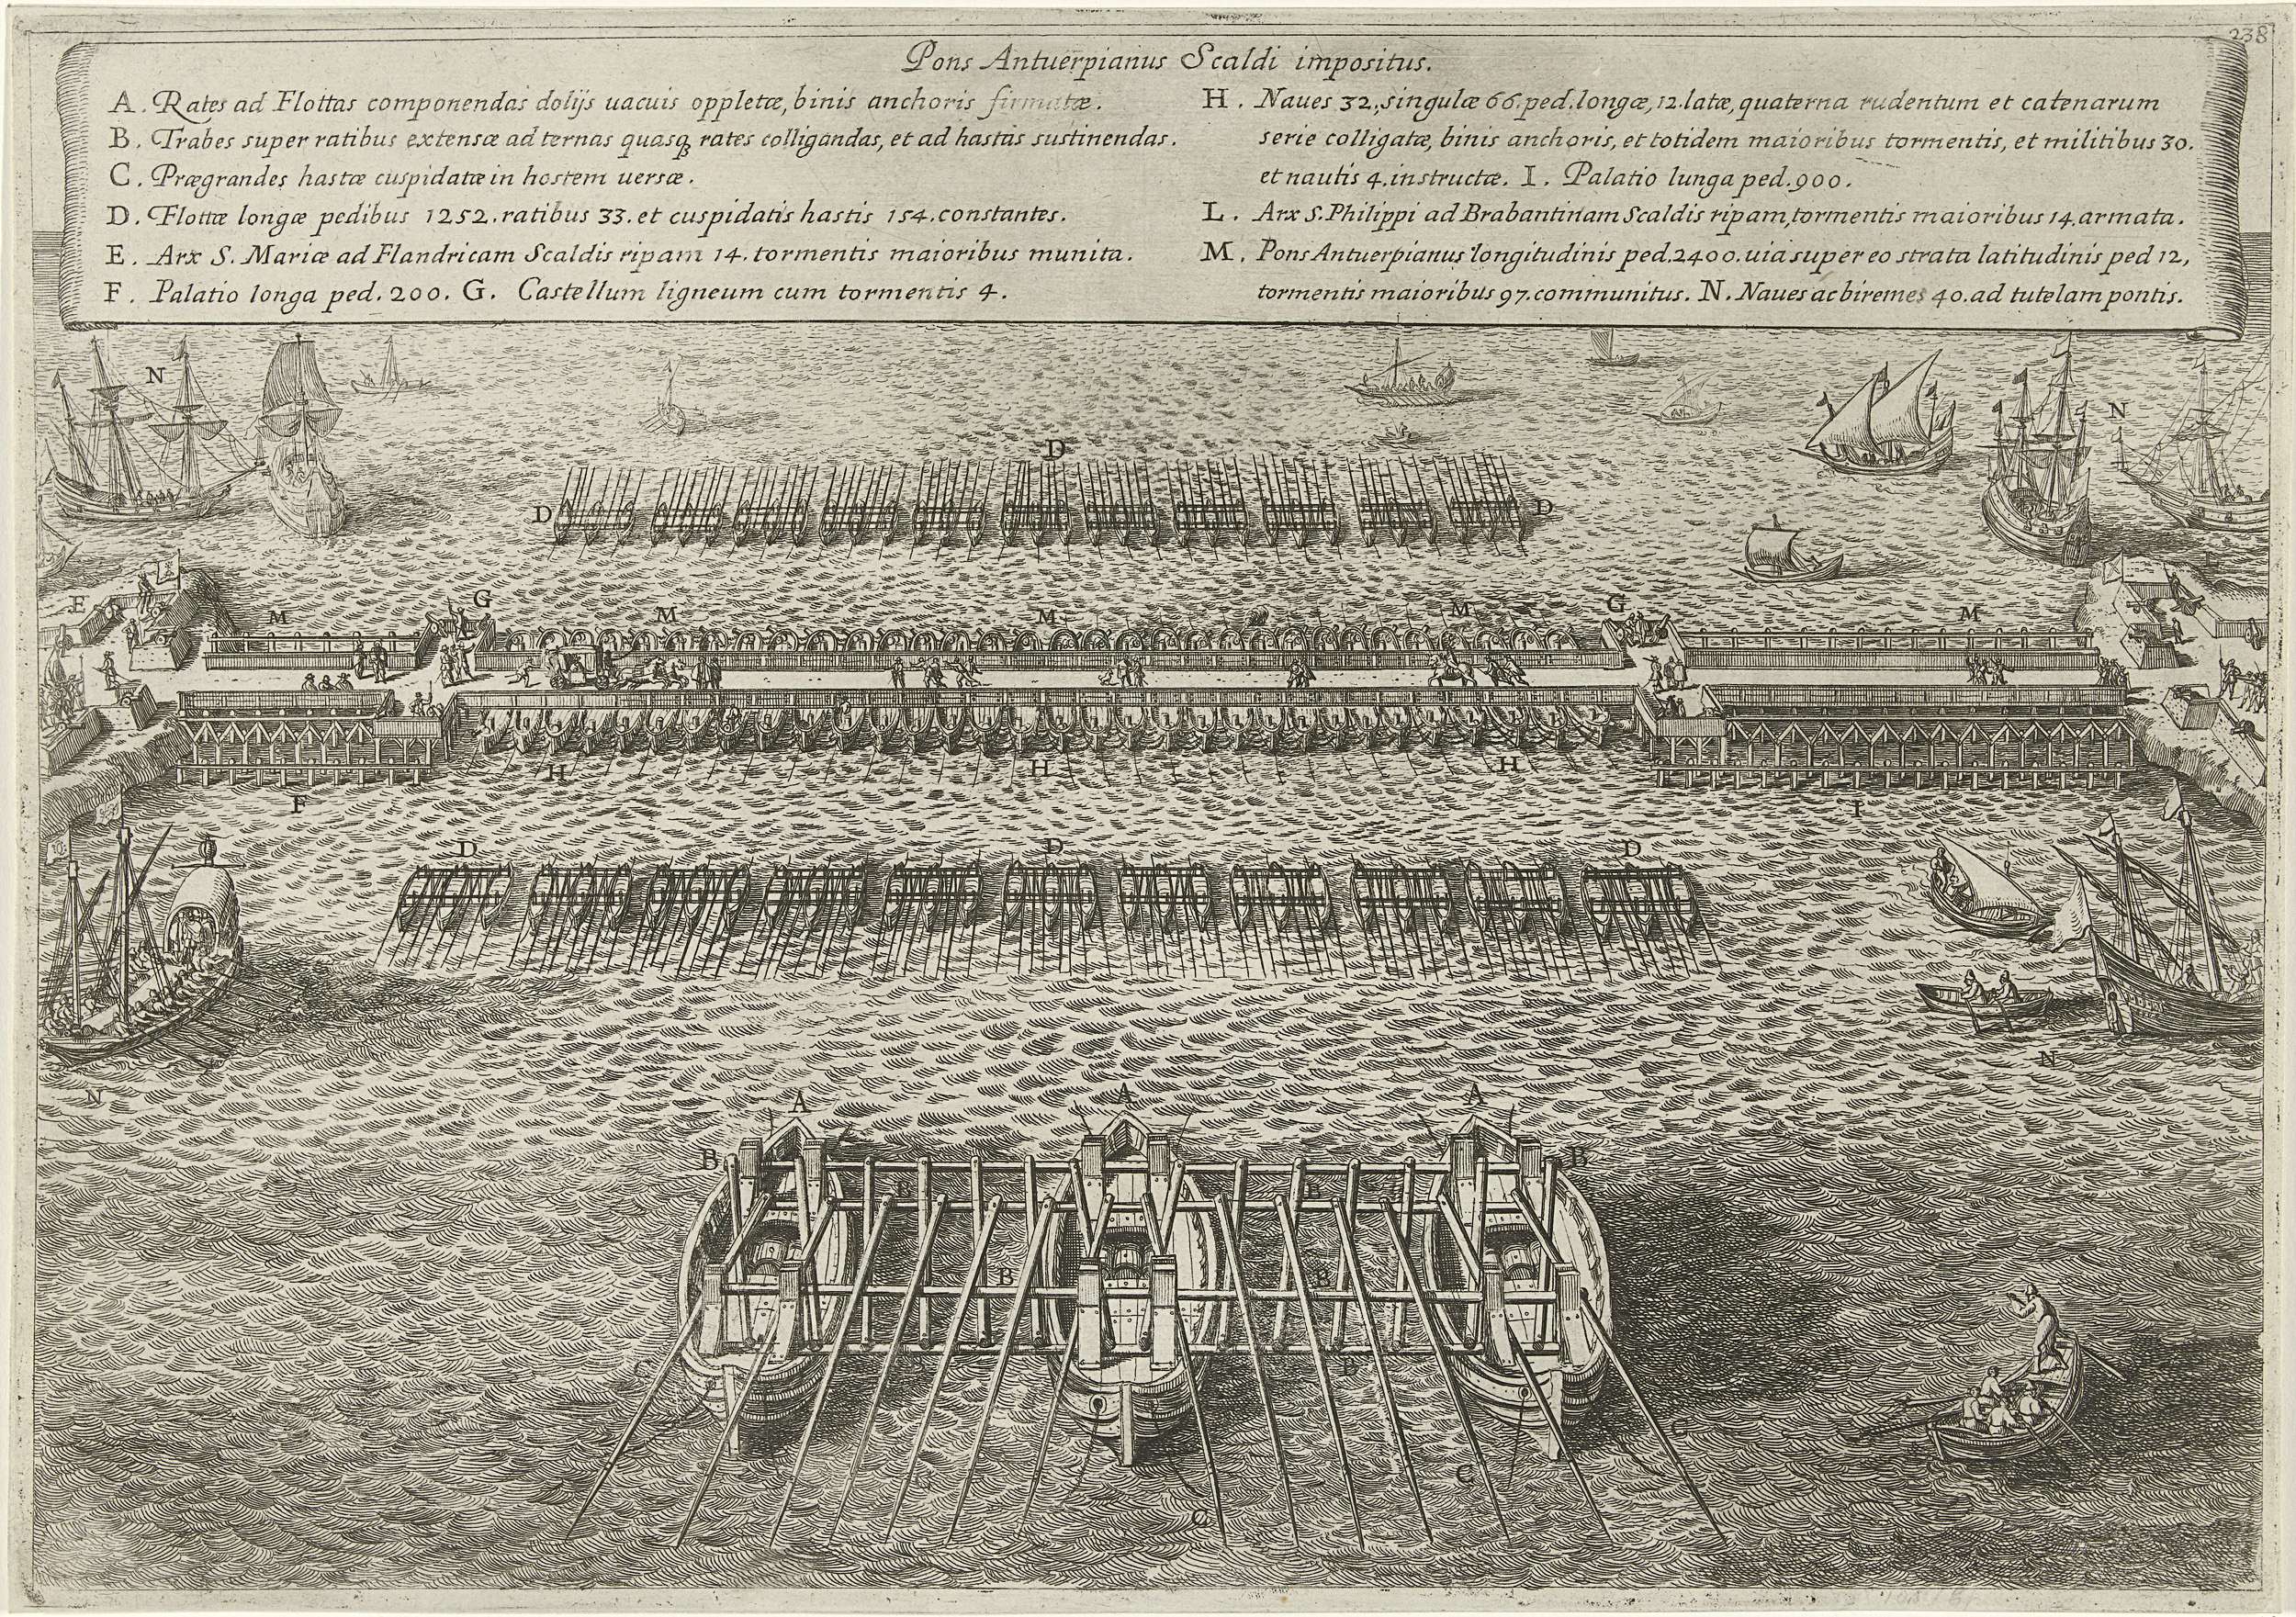 238
Pons Antuerpianus Scaldi impositus.
A. Rates ad Flottas componendas dolijs uacuis oppletæ, binis anchoris firmatæ.
B. Trabes super ratibus extensæ ad ternas quasq; rates colligandas, et ad hastas sustinendas.
C. Prægrandes hastæ cuspidatæ in hostem uersæ.
D. Flottæ longæ pedibus 1252. ratibus 33. et cuspidatis hastis 154. constantes.
E. Arx S. Mariæ ad Flandricam Scaldis ripam 14. tormentis maioribus munita.
F. Palatio longa ped. 200. G. Castellum ligneum cum tormentis 4.
H. Naues 32, singulæ 66. ped. longæ, 12. latæ, quaterna rudentum et catenarum
serie colligatæ, binis anchoris, et totidem maioribus tormentis, et militibus 30.
et nautis 4. instructæ. I. Palatio lunga ped. 900.
L. Arx S. Philippi ad Brabantinam Scaldis ripam, tormentis maioribus 14. armata.
M. Pons Antuerpianus longitudinis ped. 2400. uia super eo strata latitudinis ped 12,
tormentis maioribus 97. communitus. N. Naues ac biremes 40. ad tutelam pontis.
N
N
D
D D
L
E G G
M M M M M
H H H
F I
D D D
N
N
A A A
B B
B B
B B
C B
C
C
C